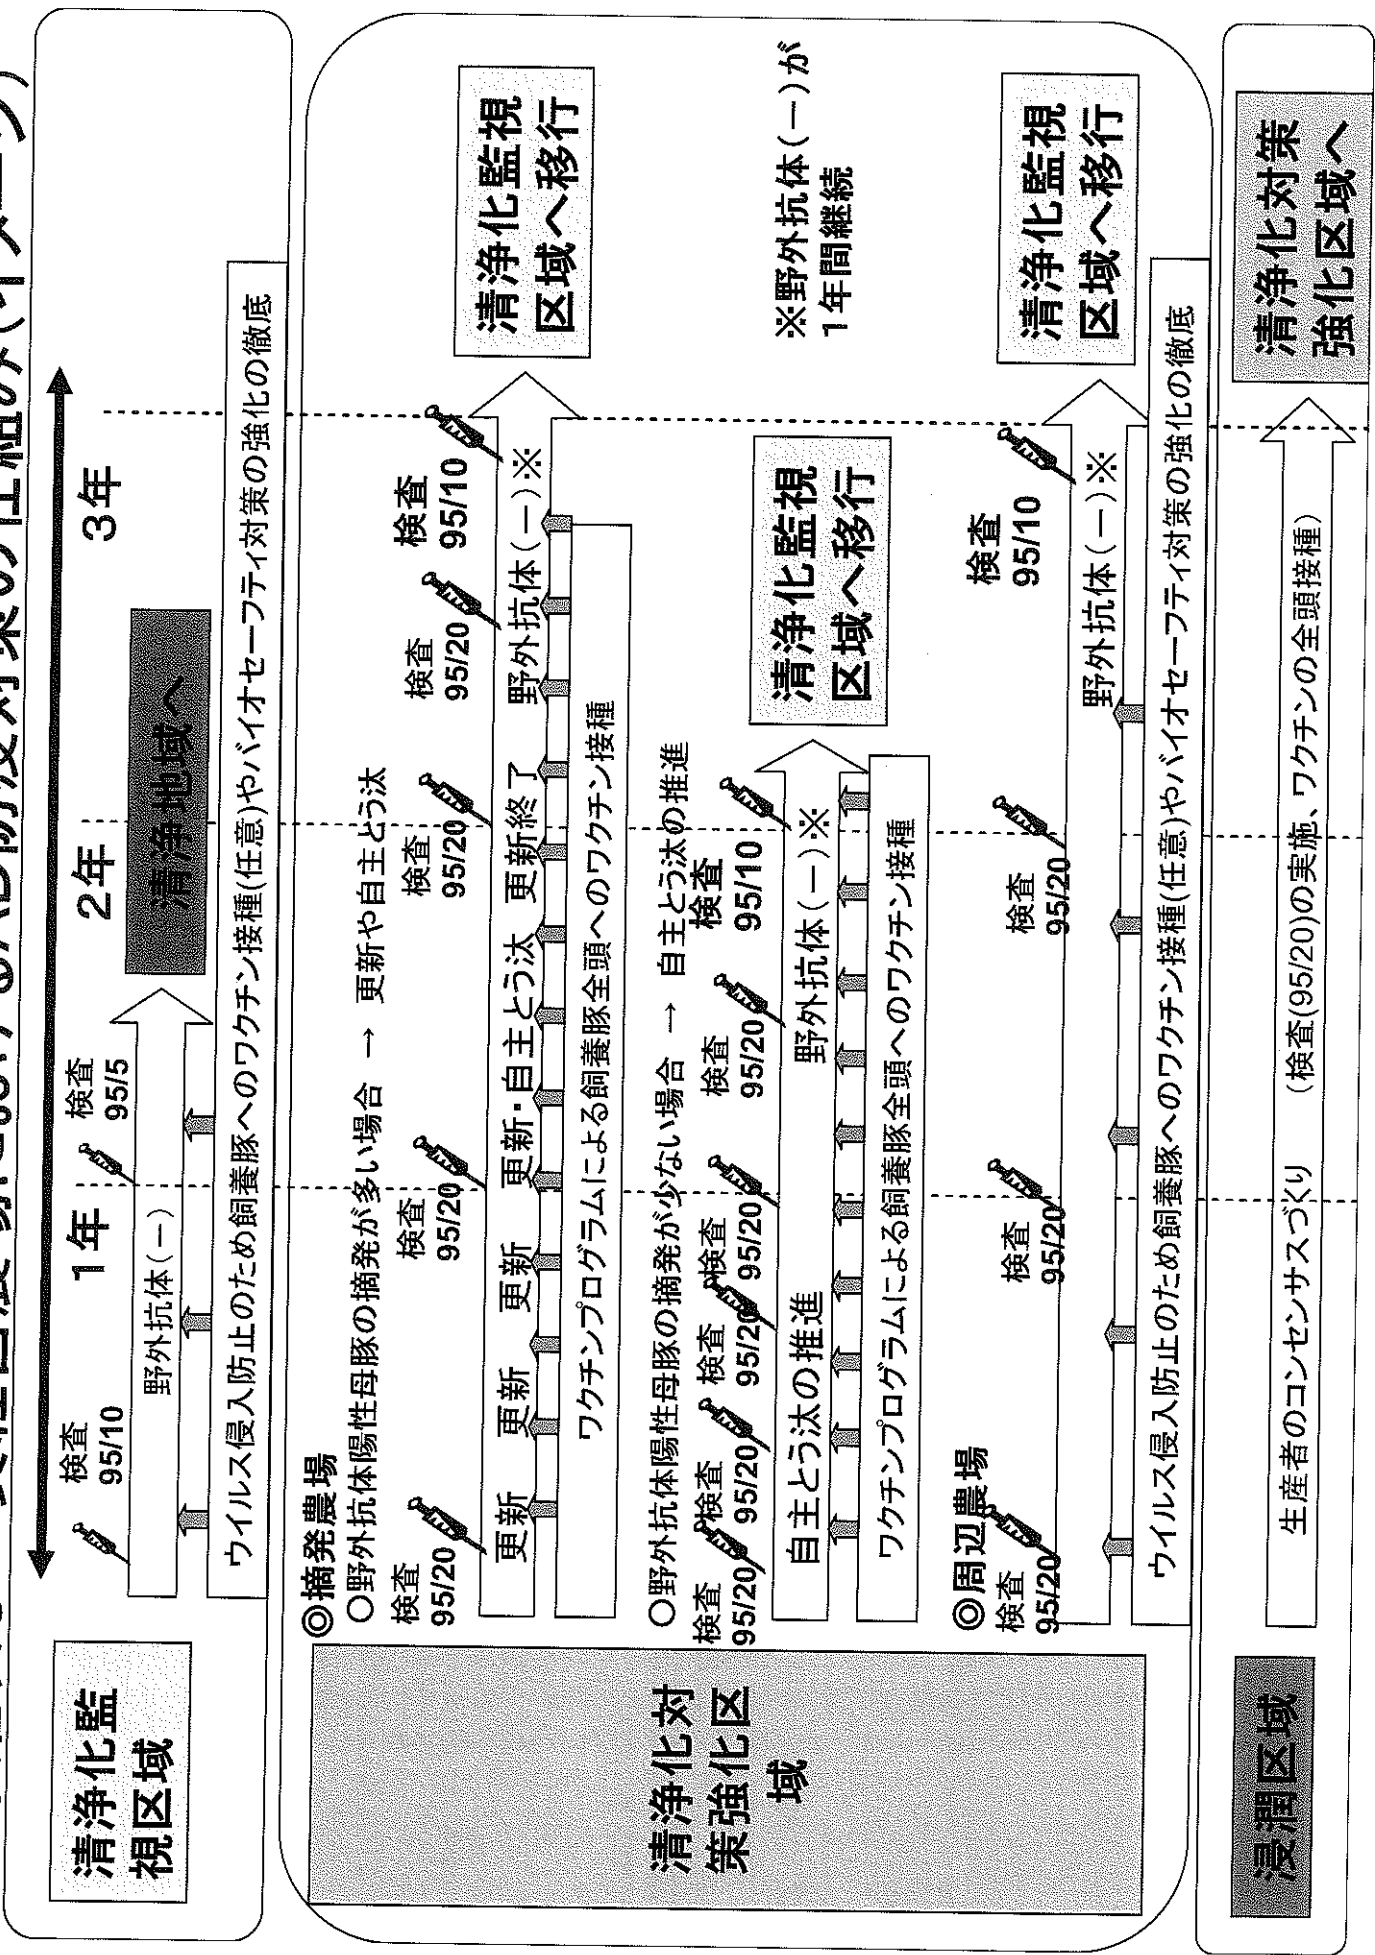 1年
2年
3年
清浄化監
視区域
検査
95/10
検査
95/5
野外抗体(－)
清浄地域へ
ウイルス侵入防止のため飼養豚へのワクチン接種(任意)やバイオセーフティ対策の強化の徹底
清浄化対
策強化区
域
◎摘発農場
○野外抗体陽性母豚の摘発が多い場合 → 更新や自主とう汰
検査
95/20
検査
95/20
検査
95/20
検査
95/20
検査
95/10
更新 更新 更新 更新・自主とう汰 更新終了 野外抗体(－)※
清浄化監視
区域へ移行
ワクチンプログラムによる飼養豚全頭へのワクチン接種
○野外抗体陽性母豚の摘発が少ない場合 → 自主とう汰の推進
検査
95/20
検査
95/20
検査
95/20
検査
95/20
検査
95/20
検査
95/10
自主とう汰の推進 野外抗体(－)※
清浄化監視
区域へ移行
※野外抗体(－)が
1年間継続
ワクチンプログラムによる飼養豚全頭へのワクチン接種
◎周辺農場
検査
95/20
検査
95/20
検査
95/20
検査
95/10
野外抗体(－)※
清浄化監視
区域へ移行
ウイルス侵入防止のため飼養豚へのワクチン接種(任意)やバイオセーフティ対策の強化の徹底
浸潤区域
生産者のコンセンサスづくり (検査(95/20)の実施、ワクチンの全頭接種)
清浄化対策
強化区域へ